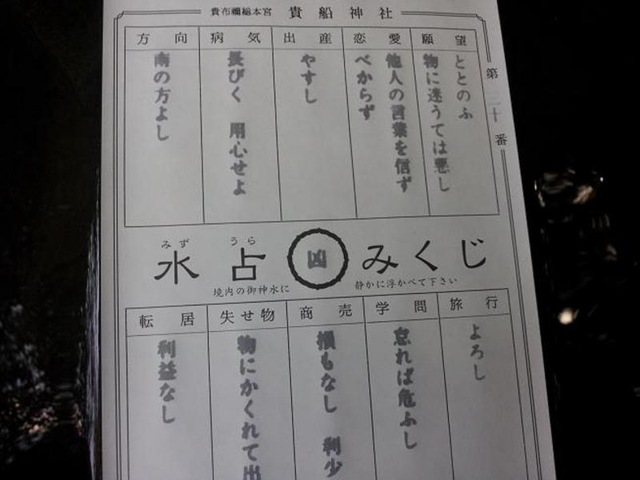 貴布禰総本宮 貴船神社
第三十番
願望
ととのふ
物に迷うては悪し
恋愛
他人の言葉を信ず
べからず
出産
やすし
病気
長びく 用心せよ
方向
南の方よし
みず うら
水占 凶 みくじ
境内の御神水に 静かに浮かべて下さい
旅行
よろし
学問
怠れば危ふし
商売
損もなし 利少
失せ物
物にかくれて出
転居
利益なし